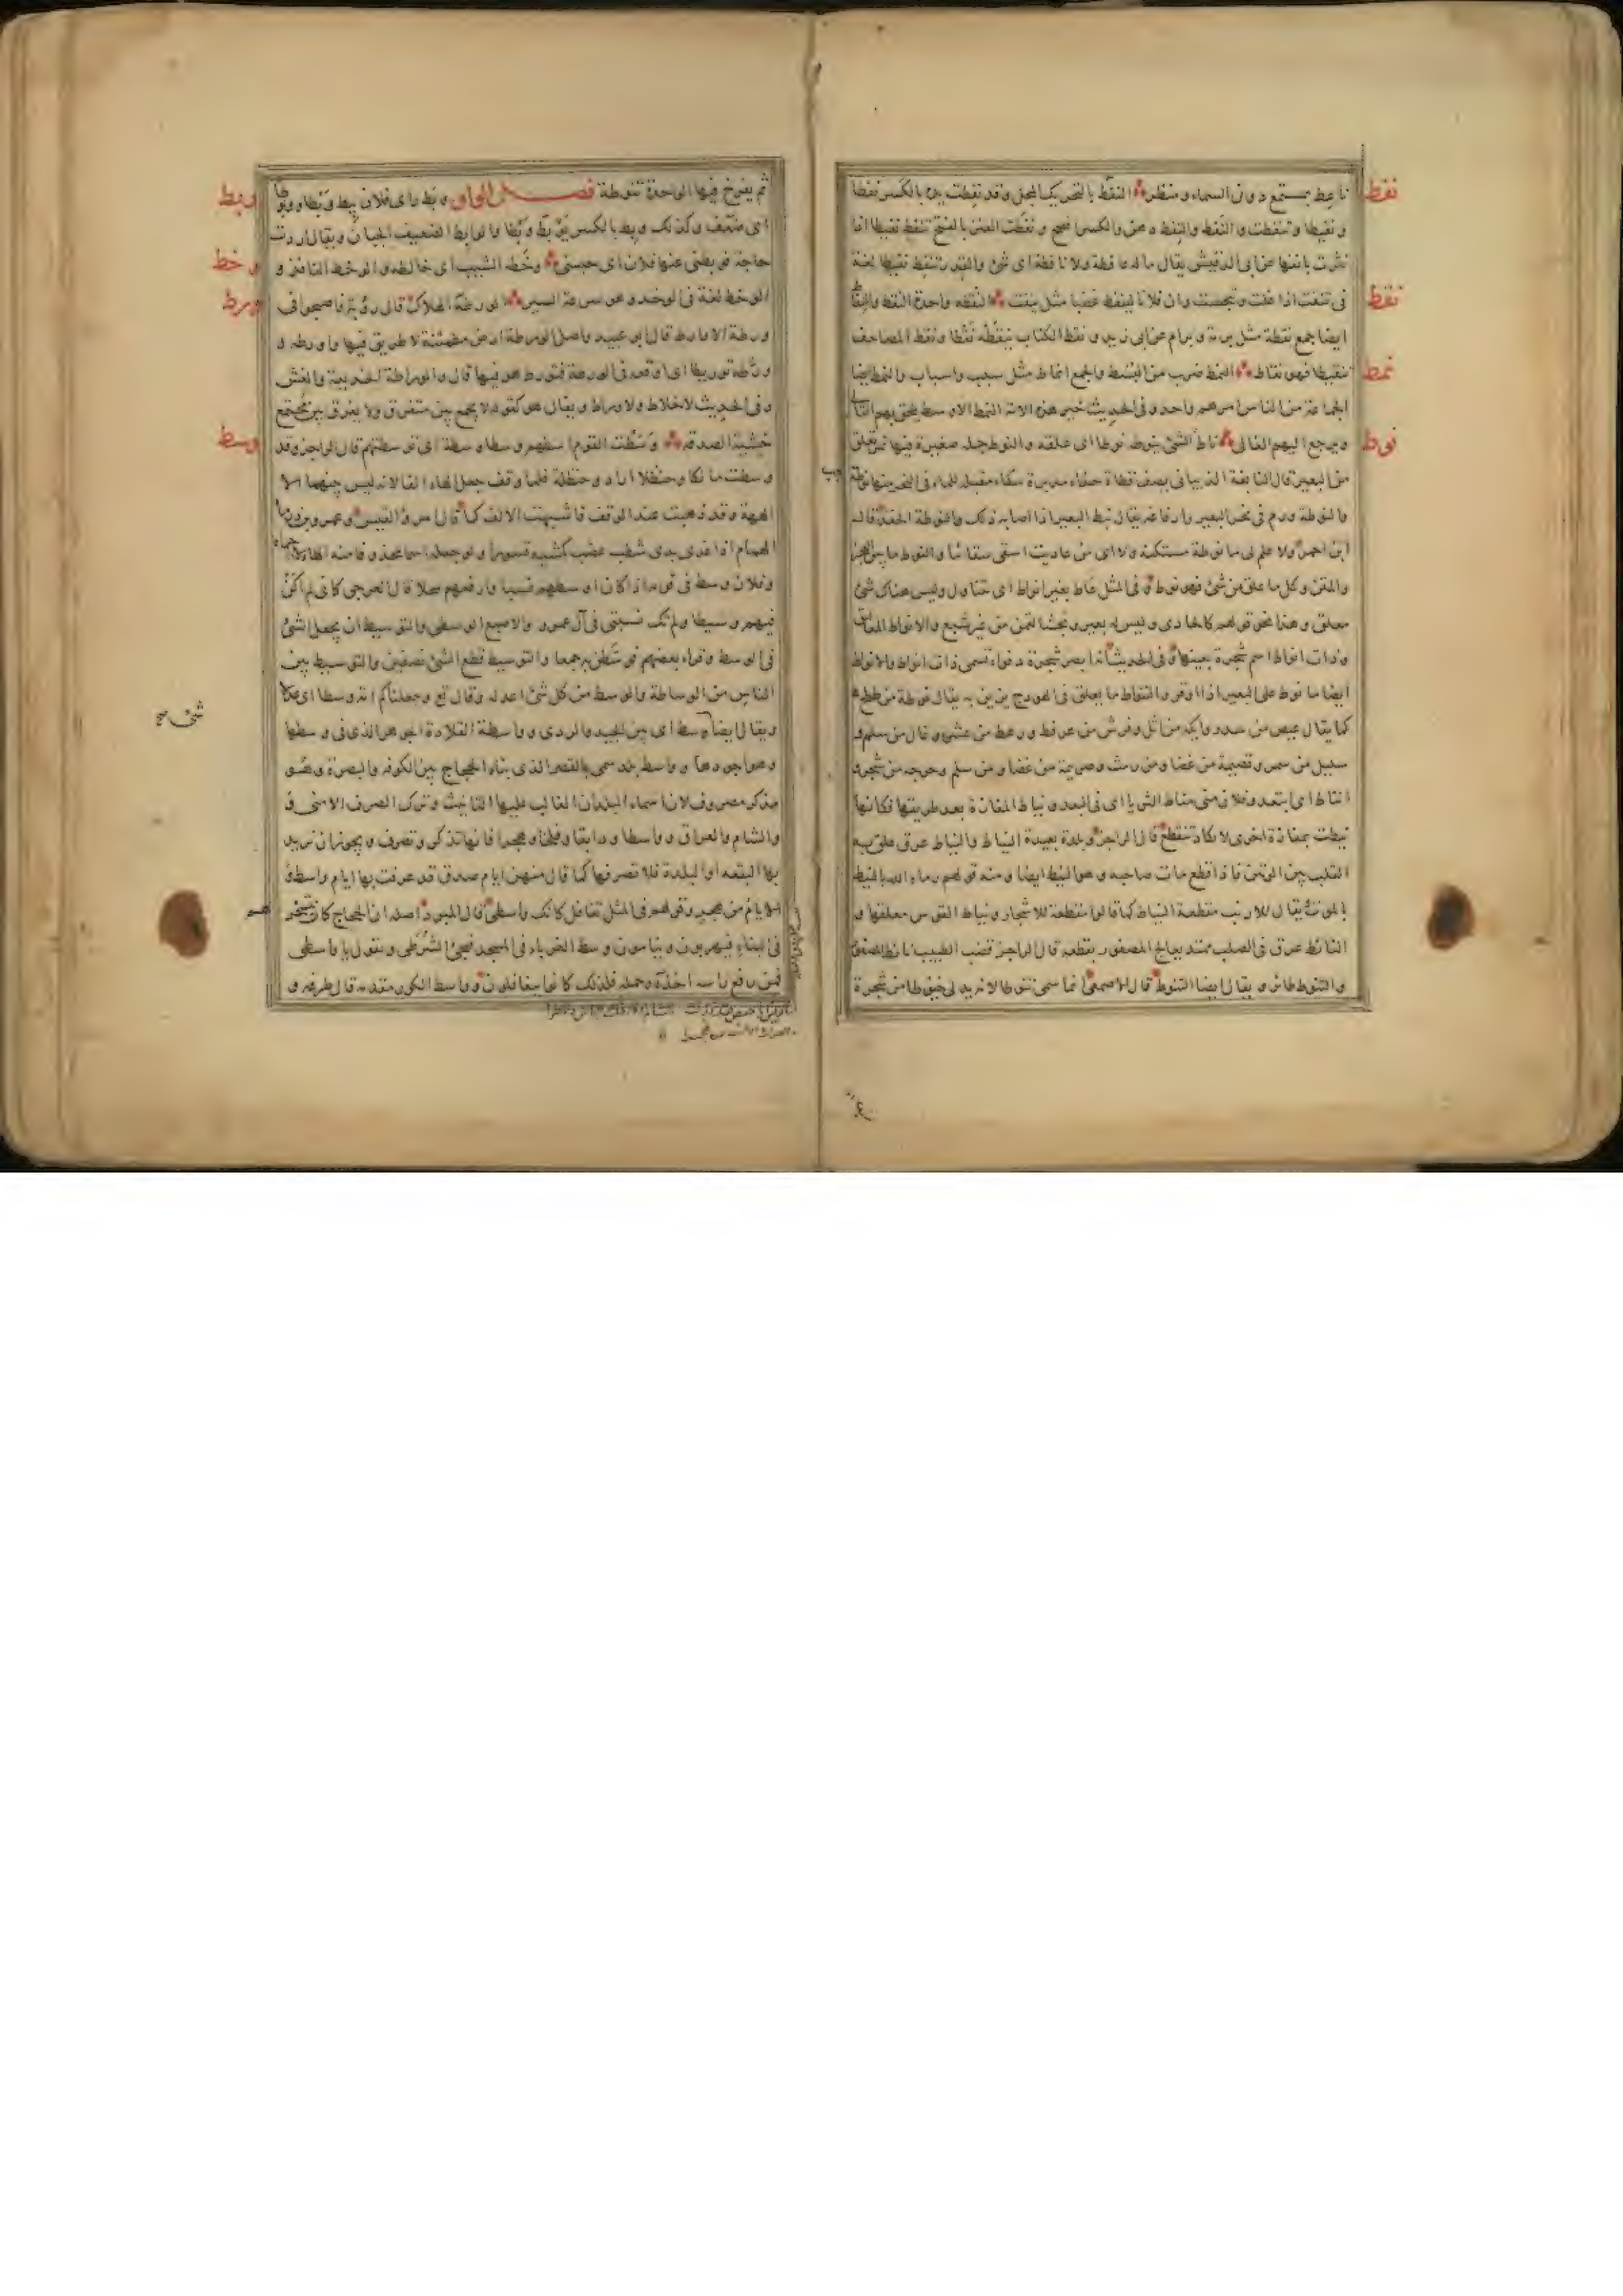 نفط
ناعط بمستمع دون السماء ومنظر النفط بالتحريك المجل وقد نفطت يده بالكسر نفطا
ونفيطا وتنفطت والنفط والنفط دهن والكسر افصح ونفطت العنز بالفتح تنفط نفيطا اذا
نثرت بانفها عن ابى الدقيش يقال ماله عافطة ولا نافطة اى شئ والقدر تنفط نفيطا لغة
نقط
فى تنفت اذا غلت وتبجست وان فلانا لينفط غضبا مثل ينفت النقطه واحدة النقط والنقاط
ايضا جمع نقطة مثل برمة وبرام عن ابى زيد ونقط الكتاب ينقطه نقطا ونقط المصاحف
نمط
تنقيطا فهو نقاط النمط ضرب من البسط والجمع انماط مثل سبب واسباب والنمط ايضا
الجماعة من الناس امرهم واحد وفى الحديث خير هذه الامة النمط الاوسط يلحق بهم التالى
نوط
ويرجع اليهم الغالى ناط الشئ ينوط نوطا اى علقه والنوط جلة صغيرة فيها تمر تعلق
من البعير قال النابغة الذبيانى يصف قطاة حذاء مدبرة سكاء مقبلة للماء فى النحر منها نوطة
والنوطة ورم فى نحر البعير وارفاغه يقال نيط البعير اذا اصابه ذلك والنوطة الحقد قال
ابن احمر ولا علم لى ما نوطة مستكنة ولا اى من عاديت اسقى سقائيا والنوط ما بين العجز
والمتن وكل ما علق من شئ فهو نوط وفى المثل عاط بغير انواط اى يتناول وليس هناك شئ
معلق وهذا نحو قولهم كالحادى وليس له بعير وتجشا لقمن من غير شبع والانواط المعاليق
وذات انواط اسم شجرة بعينها وفى الحديث انه ابصر شجرة دفواء تسمى ذات انواط والانواط
ايضا ما نوط على البعير اذا اوقر والتنواط ما يعلق فى الهودج يزين به يقال نوطة من طلح
كما يقال عيص من سدر وايكة من اثل وفرش من عرفط ورهط من عشر وغال من سلم و
سليل من سمر وقصيمة من غضا ومن رمث وصريمة من غضا ومن سلم وحرجة من شجر و
انتاط اى بعد وفلان منى مناط الثريا اى فى البعد ونياط المفازة بعد طريقها فكانها
نيطت بمفازة اخرى لا تكاد تنقطع قال الراجز وبلدة بعيدة النياط والنياط عرق علق به
القلب من الوتين فاذا قطع مات صاحبه وهو النيط ايضا ومنه قولهم رماه الله بالنيط
اى بالموت يقال للارنب مقطعة النياط كما قالوا مقطعة الاسحار ونياط القوس معلقها و
النائط عرق فى الصلب ممتد يعالج المصفور بقطعه قال الراجز قضب الطبيب نائط المصفور
والتنوط طائر ويقال ايضا التنوط قال الاصمعى انما سمى تنوطا لانه يدلى خيوطا من شجرة
وبط
ثم يفرخ فيها الواحدة تنوطة فصل الواو وبط راى فلان يبط وبطا ووبوطا
اى ضعف وكذلك وبط بالكسر يوبط وبطا والوابط الضعيف الجبان ويقال اردت
وخط
حاجة فوبطنى عنها فلان اى حبسنى وخطه الشيب اى خالطه والوخط الطعن النافذ و
ورط
الوخط لغة فى الوخد وهو سرعة السير الورطة الهلاك قال رؤبة فاصبحوا فى
ورطة الاوراط قال ابو عبيد واصل الورطة ارض مطمئنة لا طريق فيها واورطه و
ورطه توريطا اى اوقعه فى الورطة فتورط هو فيها قال والوراطة الخديعة والغش
وفى الحديث لا خلاط ولا وراط ويقال هو كقوله لا يجمع بين متفرق ولا يفرق بين مجتمع
وسط
خشية الصدقة وسطت القوم اسطهم وسطا وسطة اى توسطتهم قال الراجز وقد
وسطت مالكا وحنظلا اراد وحنظلة فلما وقف جعل الهاء الفا لانه ليس بينهما الا
الههة وقد ذهبت عند الوقف فاشبهت الالف كما قال امرؤ القيس وعمرو بن درما
الهمام اذا غدى بذى شطب عضب كمشية قسورا
وفلان وسيط فى قومه اذا كان اوسطهم نسبا وارفعهم محلا قال العرجى كانى لم اكن
فيهم وسيطا ولم تك نسبتى فى آل عمرو والاصبع الوسطى والتوسيط ان يجعل الشئ
فى الوسط وقراء بعضهم فوسطن به جمعا والتوسيط قطع الشئ نصفين والتوسيط بين
الناس من الوساطة والوسط من كل شئ اعدله وقال تع وجعلناكم امة وسطا اى عدلا
شئ صح
ويقال ايضا وسط اى بين الجيد والردى وواسطة القلادة الجوهر الذى فى وسطها
وهو اجودها وواسط بلد سمى بالقصر الذى بناه الحجاج بين الكوفه والبصرة وهو
مذكر مصروف لان اسماء البلدان الغالب عليها التانيث وترك الصرف الا منى و
والشام والعراق وواسطا ودابقا وفلجا وهجرا فانها تذكر وتصرف ويجوز ان تريد
بها البقعة او البلدة فلا تصرفها كما قال منهن ايام صدق قد عرفت بها ايام واسط و
الايام من هجر وقولهم فى المثل تغافل كانك واسطى قال المبرد اصله ان الحجاج كان يتسخر
فى البناء فيهربون وينامون وسط الغرباء فى المسجد فيجئ الشرطى ويقول يا واسطى
فمن رفع راسه اخذه وحمله فلذلك كانوا يتغافلون وواسط الكور مقدمه قال طرفه و